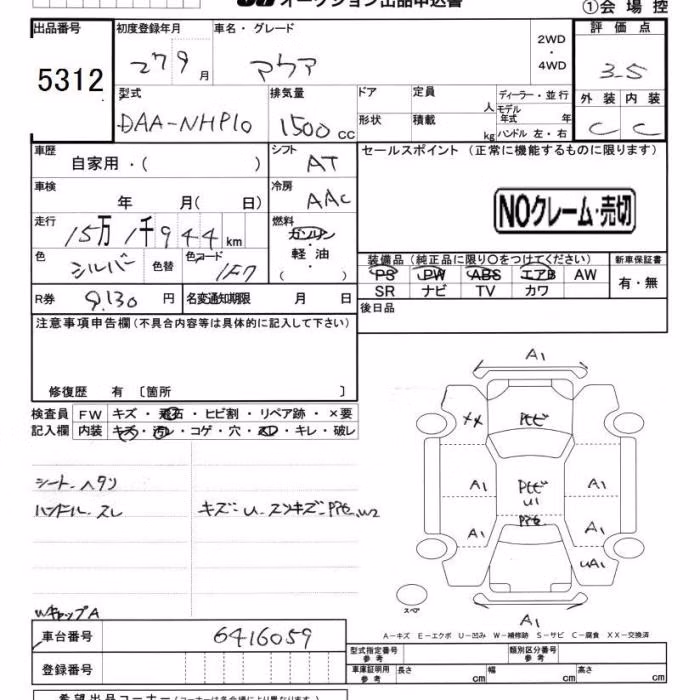 オークション出品申込書
①会場控
出品番号 5312
初度登録年月 27 9 月
車名・グレード アクア
2WD ・ 4WD
評価点 3.5
外装 C 内装 C
型式 DAA-NHP10
排気量 1500 cc
ドア 定員 人
形状 積載 kg
ディーラー・並行
モデル年式 年
ハンドル 左・右
車歴 自家用・( )
シフト AT
セールスポイント (正常に機能するものに限ります)
車検 年 月( 日)
冷房 AAC
NOクレーム・売切
走行 15万 1千 9 4 4 km
燃料 ガソリン ・ 軽油 ( )
色 シルバー 色替 色コード 1F7
装備品 (純正品に限り○をつけてください)
新車保証書
PS PW ABS エアB AW
有・無
SR ナビ TV カワ
R券 9,130 円 名変通知期限 月 日
後日品
注意事項申告欄(不具合内容等は具体的に記入して下さい)
修復歴 有 〔箇所 〕
検査員 FW キズ・飛石・ヒビ割・リペア跡・×要
記入欄 内装 キズ・汚レ・コゲ・穴・スレ・キレ・破レ
シート.ヘタリ
ハンドル.スレ
キズ:U.スリキズ.
WキャップA
車台番号 6416059
登録番号
A1
A1
A1
A1
A1
UA1
A1
U1
スペア
A－キズ E－エクボ U－凹み W－補修跡 S－サビ C－腐食 XX－交換済
型式指定番号 参考
類別区分番号 参考
車庫証明用 参考 長さ cm 幅 cm 高さ cm
希望出品コーナー(コーナーは各会場により異なります)